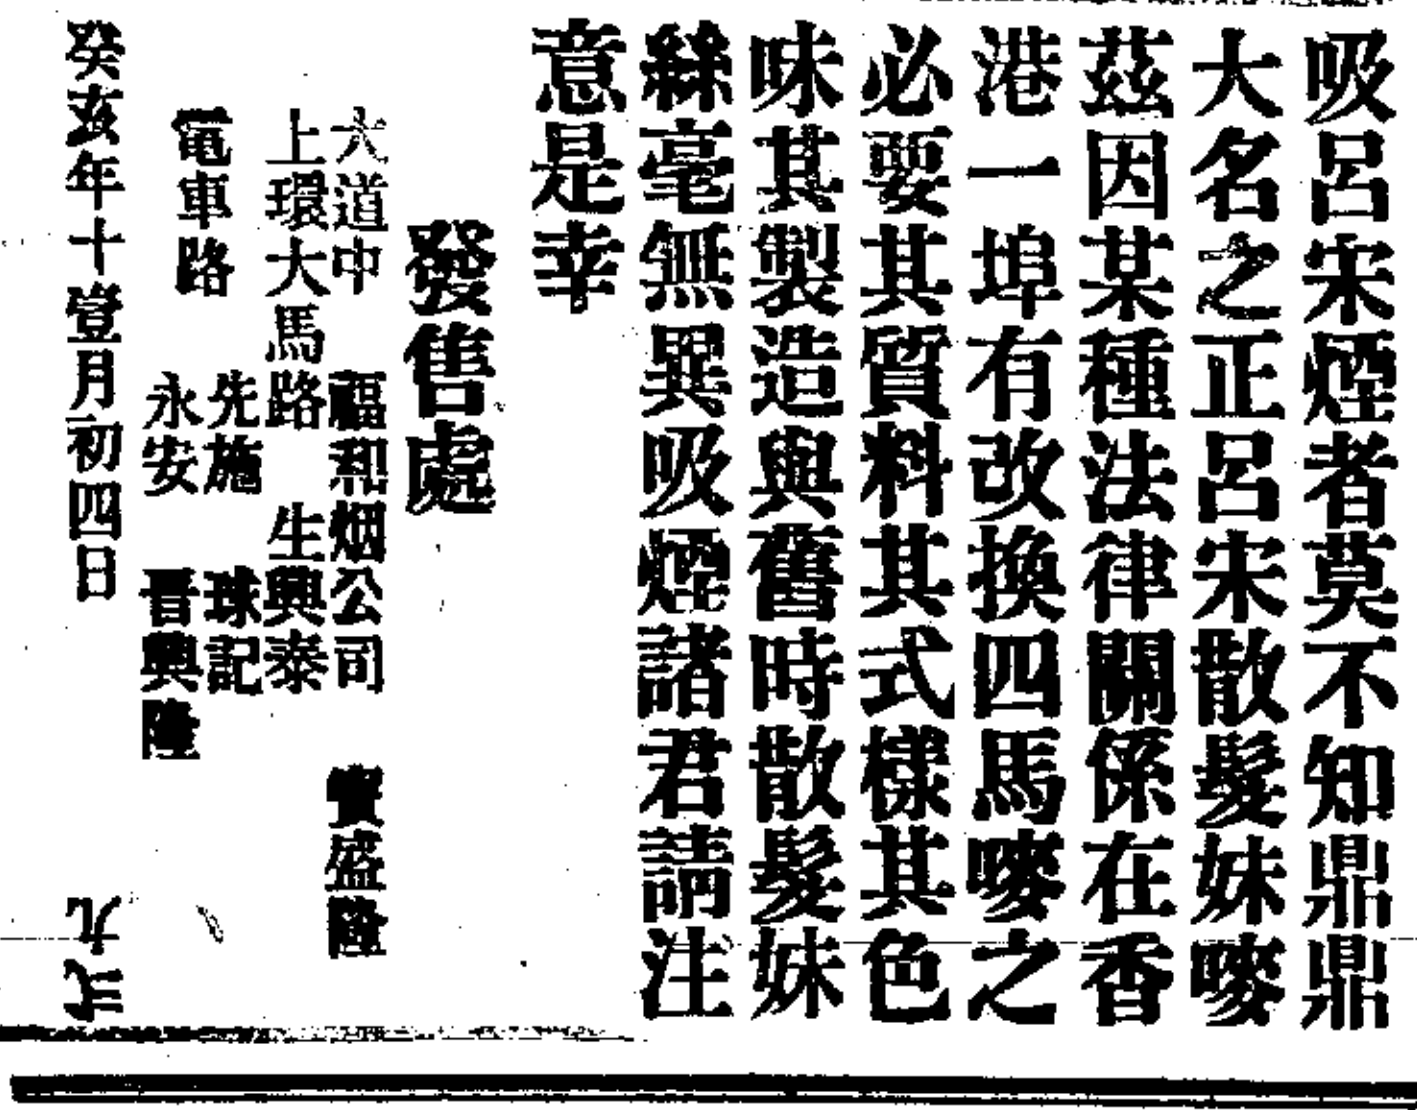 吸呂宋煙者莫不知鼎鼎
大名之正呂宋散髮妹嘜
茲因某種法律關係在香
港一埠有改換四馬嘜之
必要其質料其式樣其色
味其製造與舊時散髮妹
絲毫無異吸煙諸君請注
意是幸
發售處
大道中 福和烟公司 寶盛隆
上環大馬路 生興泰
先施 球記
電車路
永安 晋興隆
癸亥年十壹月初四日 九弍